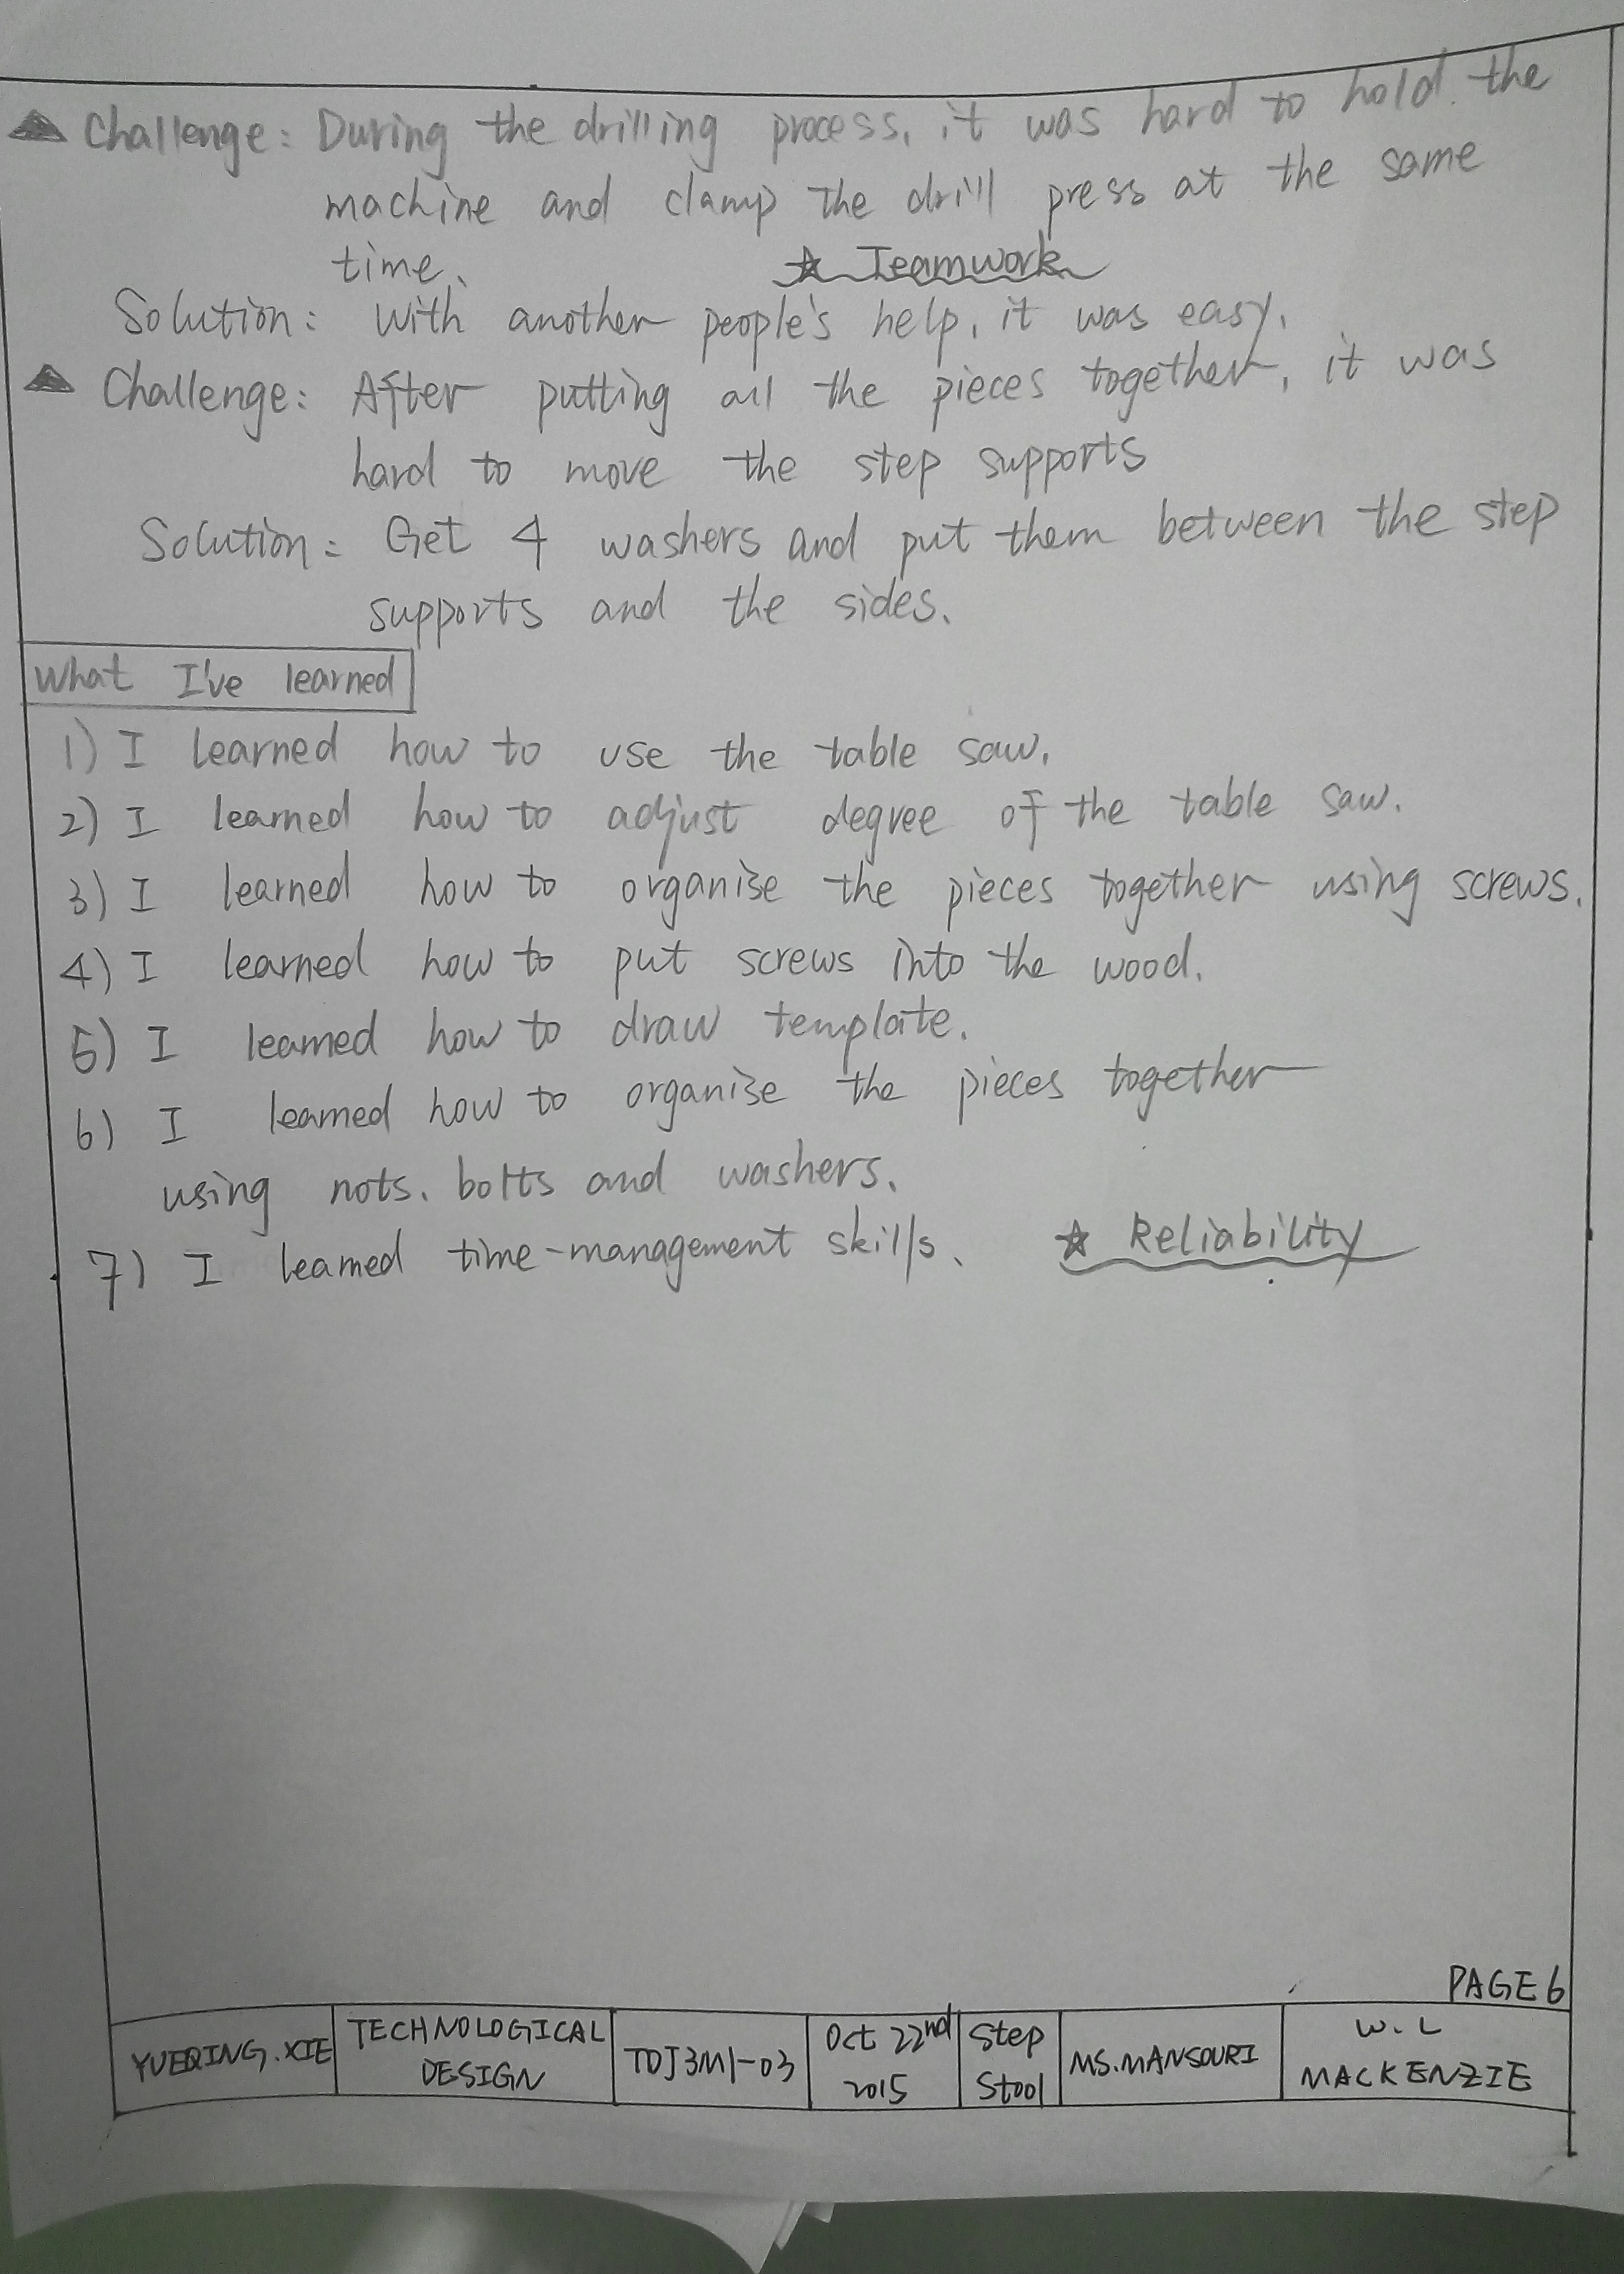 Challenge: During the drilling process, it was hard to hold the
machine and clamp the drill press at the same
time.
☆ Teamwork
Solution: With another people's help, it was easy.
Challenge: After putting all the pieces together, it was
hard to move the step supports
Solution: Get 4 washers and put them between the step
supports and the sides.
What I've learned
1) I learned how to use the table saw.
2) I learned how to adjust degree of the table saw.
3) I learned how to organise the pieces together using screws.
4) I learned how to put screws into the wood.
5) I learned how to draw template.
6) I learned how to organise the pieces together
using nots. bolts and washers.
7) I learned time-management skills. ☆ Reliability
PAGE 6
YUEQING.XIE
TECHNOLOGICAL
DESIGN
TDJ3M1-03
Oct 22nd
2015
Step
Stool
MS.MANSOURI
W.L
MACKENZIE